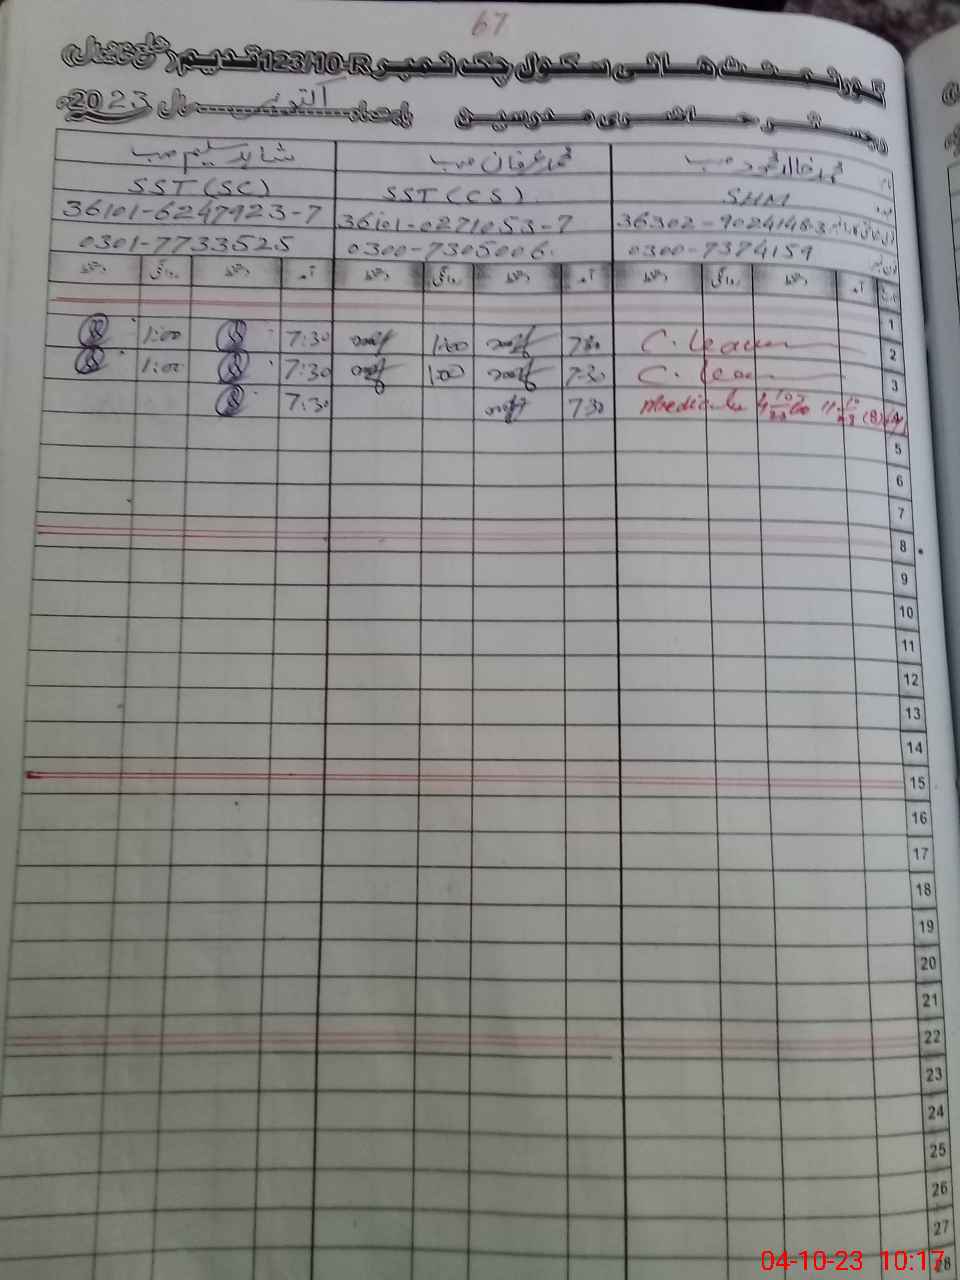 67
گورنمنٹ ہائی سکول چک نمبر 123/10-R قدیم (ضلع خانیوال)
رجسٹر حاضری مدرسین بابت ماہ اکتوبر سال 2023ء
نام محمد خالد محمود صاحب محمد عرفان صاحب شاہد سلیم صاحب
عہدہ SHM SST (CS). SST (SC)
36302-9024148-3 36101-0271053-7 36101-6247923-7
فون نمبر 0300-7374159 0300-7305006. 0301-7733525
تاریخ آمد دستخط روانگی دستخط آمد دستخط روانگی دستخط آمد دستخط روانگی دستخط
1
2 C. Leave 7:30 1:00 7:30 1:00
3 C. Leave 7:30 1:00 7:30 1:00
4 7:30 7:30
5
6
7
8
9
10
11
12
13
14
15
16
17
18
19
20
21
22
23
24
25
26
27
28
04-10-23 10:17